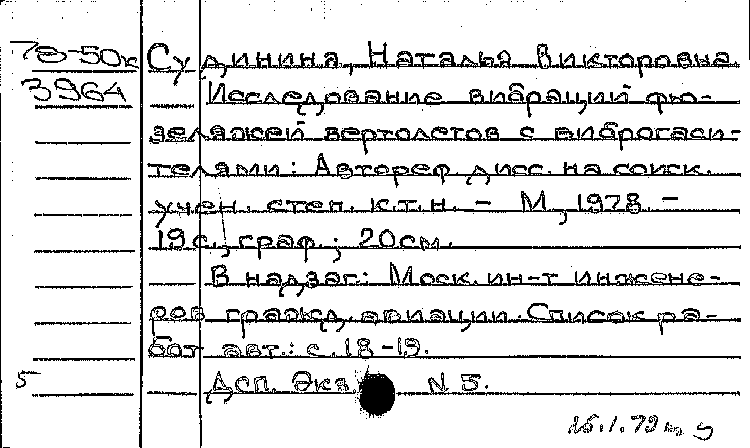 78-50к Судинина, Наталья Викторовна
3964 Исследование вибраций фю-
зеляжей вертолетов с виброгаси-
телями: Автореф. дисс. на соиск.
учен. степ. к.т.н. - М., 1978. -
19 с., граф.; 20 см.
В надзаг.: Моск. ин-т инжене-
ров гражд. авиации. Список ра-
бот авт.: с. 18-19.
5 Дсп. Экз. N 5.